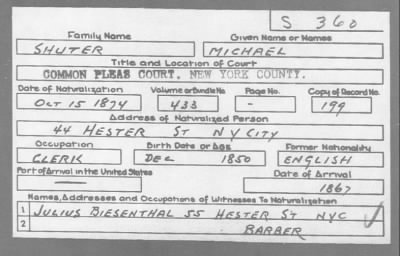 S 360
Family Name Given Name or Names
SHUTER MICHAEL
Title and Location of Court
COMMON PLEAS COURT, NEW YORK COUNTY.
Date of Naturalization Volume or Bundle No. Page No. Copy of Record No.
OCT 15 1874 433 - 199
Address of Naturalized Person
44 HESTER ST N Y CITY
Occupation Birth Date or Age Former Nationality
CLERK DEC 1850 ENGLISH
Port of Arrival in the United States Date of Arrival
— 1867
Names, Addresses and Occupations of Witnesses To Naturalization
1 JULIUS BIESENTHAL 55 HESTER ST NYC
2 BARBER